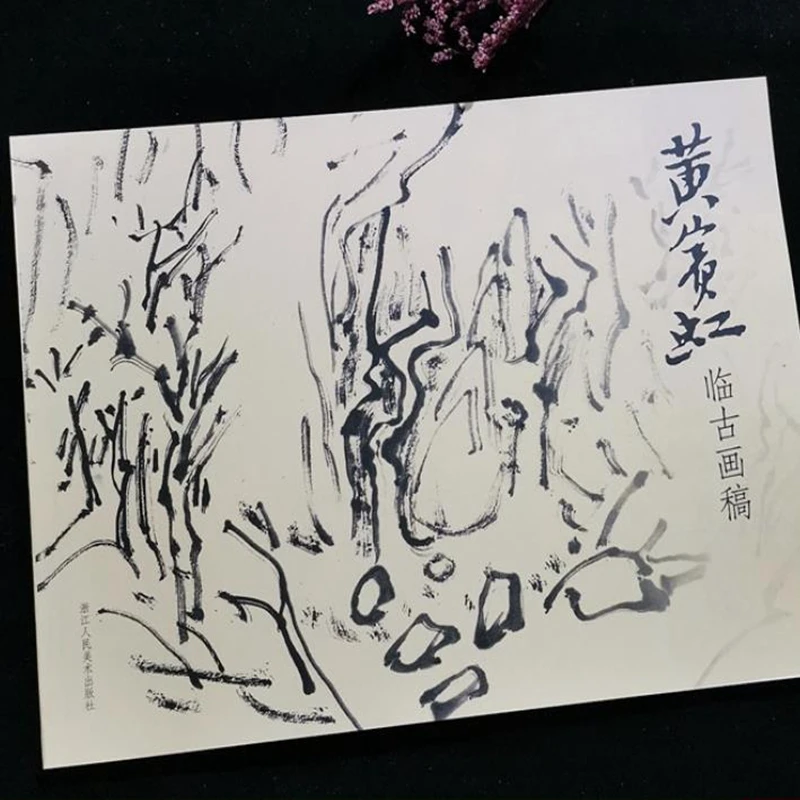 黄宾虹
临古画稿
浙江人民美术出版社